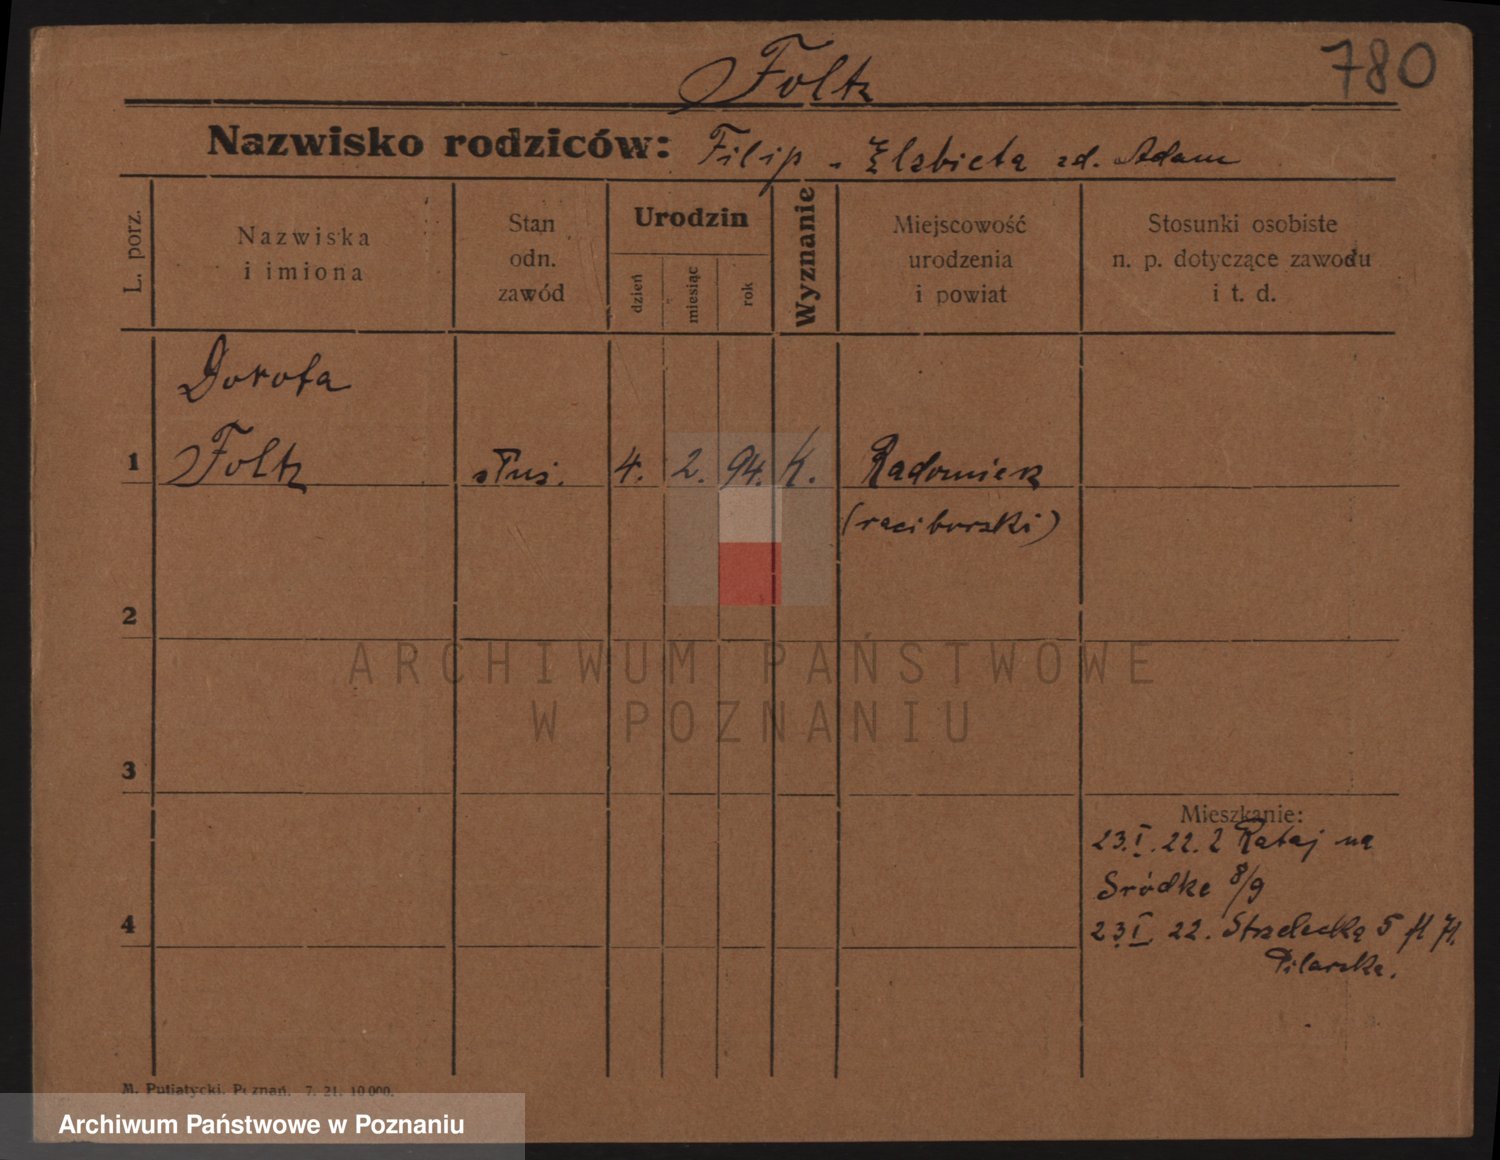 Foltz
780
Nazwisko rodziców: Filip - Elzbieta zd. Adam
L. porz.
Nazwiska
i imiona
Stan
odn.
zawód
Urodzin
dzień
miesiąc
rok
Wyznanie
Miejscowość
urodzenia
i powiat
Stosunki osobiste
n. p. dotyczące zawodu
i t. d.
Dorota
1 Foltz służ. 4. 2. 94. K. Radomiek
(raciburski)
2
3
4
ARCHIWUM PAŃSTWOWE
W POZNANIU
Mieszkanie:
23.I.22. 2 Rataj na
Sródke 8/9
23.I. 22. Strzelecka 5
Pilarska.
M. Putiatycki, Poznań. 7. 21. 10 000.
Archiwum Państwowe w Poznaniu